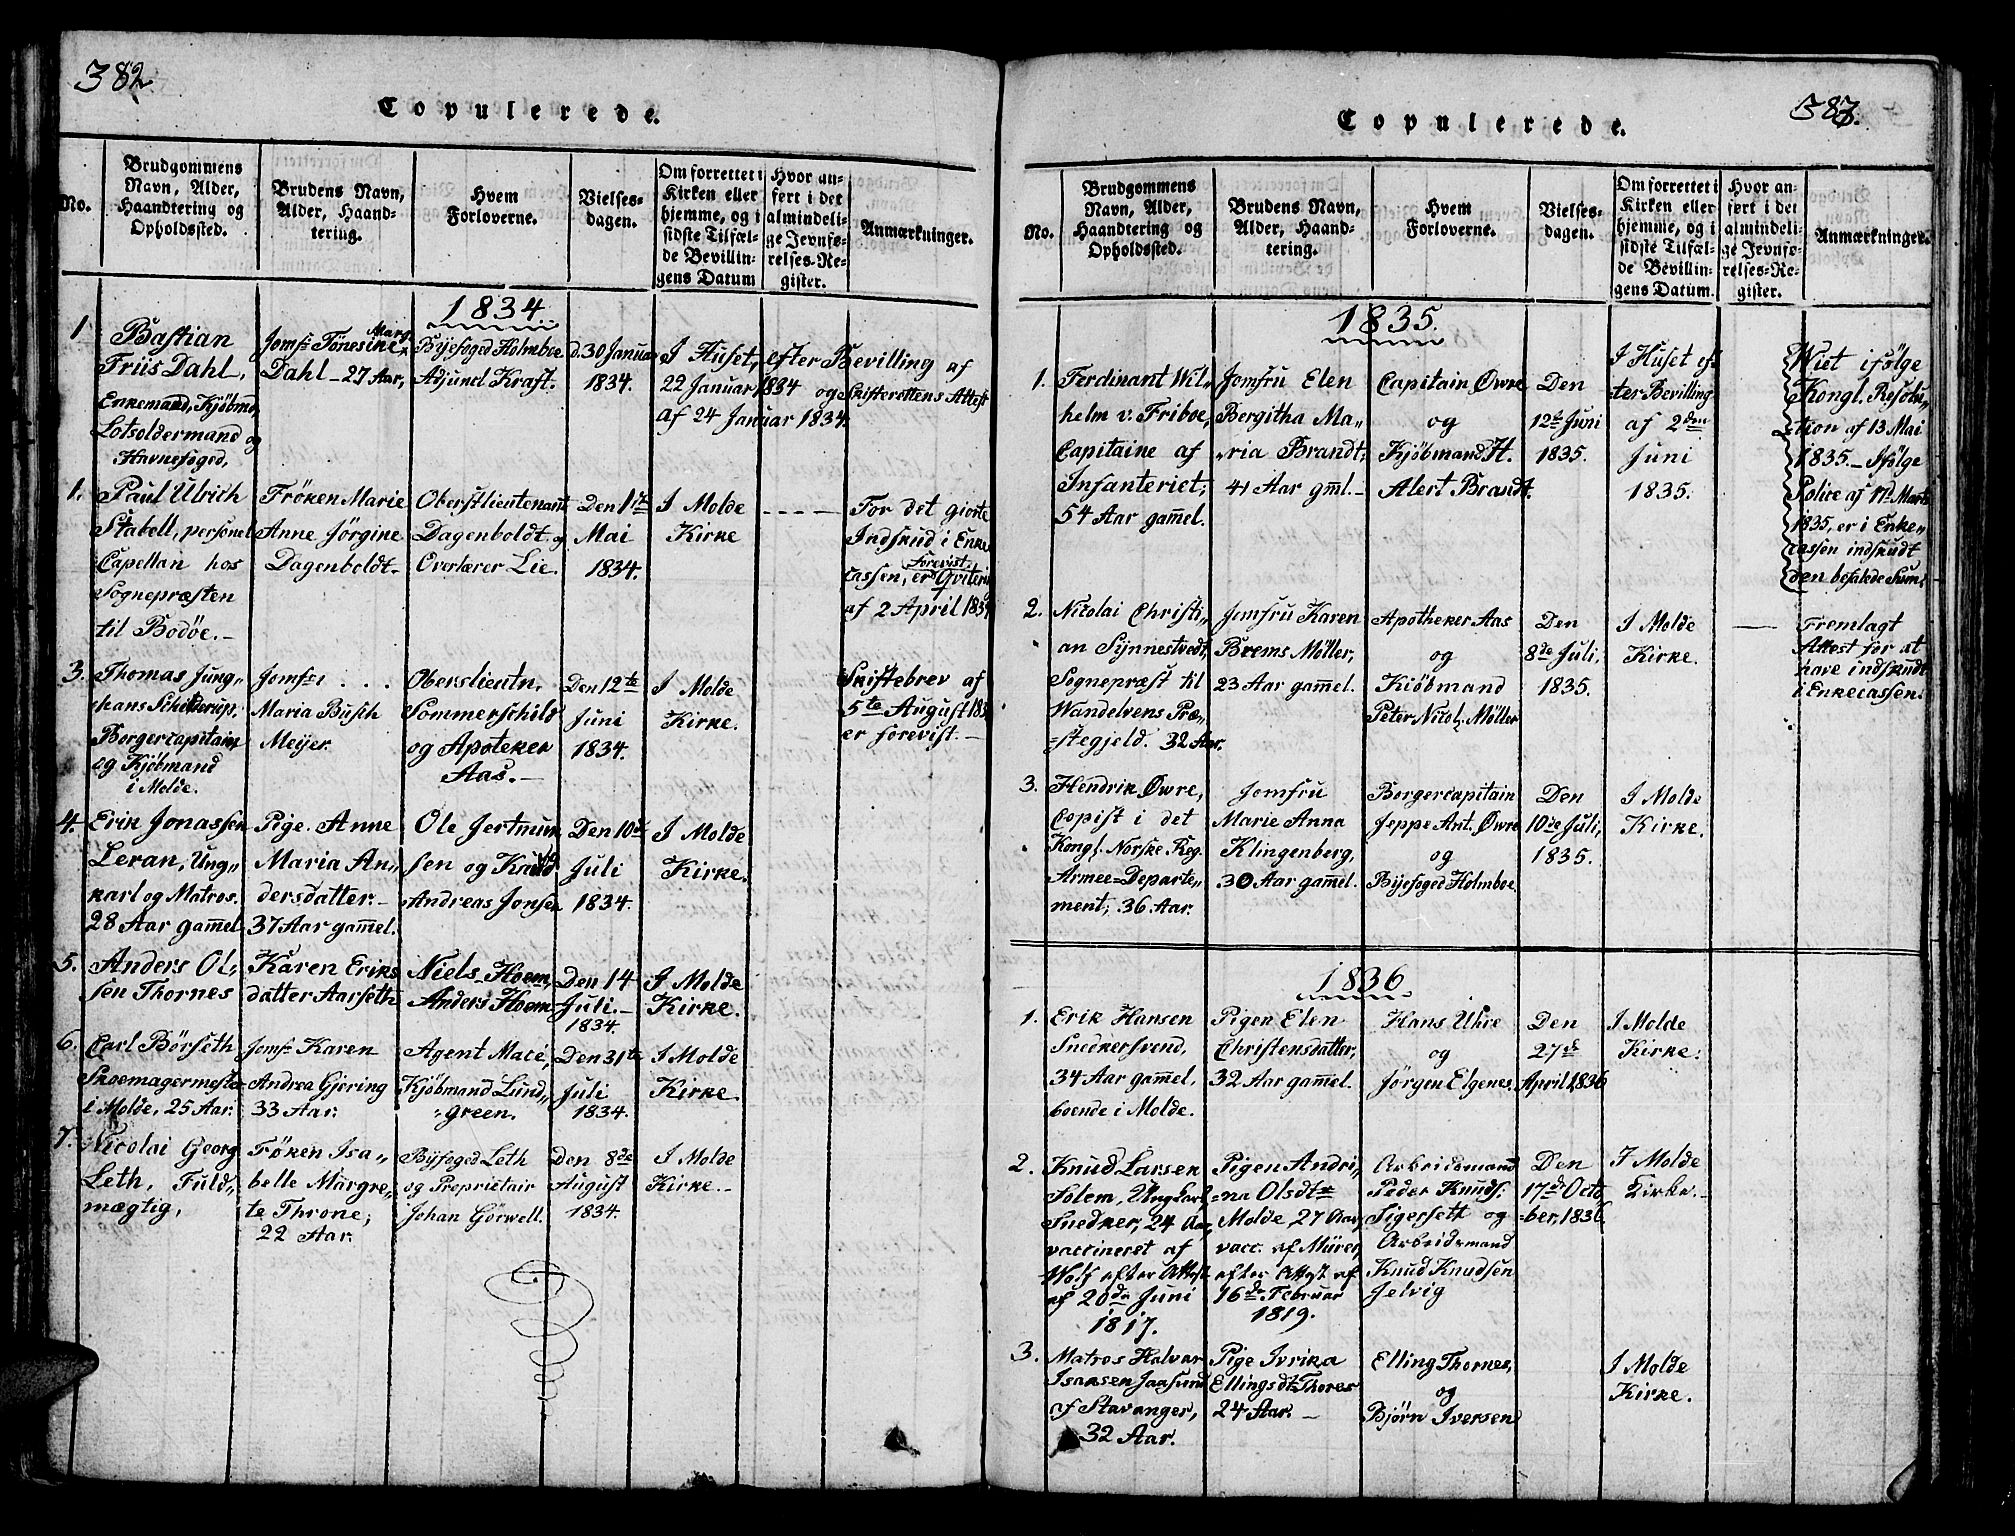 382.
Copulerede.
No.
Brudgommens
Navn, Alder,
Haandtering og
Opholdssted.
Brudens Navn,
Alder, Haand-
tering.
Hvem
Forloverne.
Vielses-
dagen.
Om forrettet i
Kirken eller
hjemme, og i
sidste Tilfæl-
de Bevillin-
gens Datum
Hvor an-
ført i det
almindeli-
ge Jevnfø-
relses-Re-
gister.
Anmærkninger.
1834.
1
Bastian
Friis Dahl,
Enkemand, Kjøbmd
Lotsoldermand og
Havnefoged,
Jomfr Tönesine Marg
Dahl – 27 Aar,
Byefoged Holmboe
Adjunct Kraft.
d. 30 Januar
1834.
I Huset, efter Bevilling af
22 Januar 1834 og Skifterettens Attest
af 24 Januar 1834.
1.
Paul Ulrich
Stabell, personel
Capellan hos
Sognepræsten
til Bodøe.–
Frøken Marie
Anne Jørgine
Dagenboldt.
Oberstlieutenant
Dagenboldt og
Overlærer Lie.
Den 1te
Mai
1834.
I Molde
Kirke
For det giorte
Indskud i Enke
cassen, er forevist Qvitering
af 2 April 1834
3.
Thomas Jung„
hans Schilderup,
Borgercapitain
og Kjøbmand
i Molde.
Jomfr . . .
Maria Busch
Meijer.
Oberslieutn.
Sommerschild
og Apoteker
Aas.–
Den 12te
Juni
1834.
I Molde
Kirke.
Skiftebrev af
5te August 183
er forevist.–
4.
Erik Jonassen
Leran, Ung„
karl og Matros.
28 Aar gam̅el
Pige. Anne
Maria An„
dersdatter.–
37 Aar gam̅el.
Ole Jertmun
sen og Knud
Andreas Jonsen
Den 10de
Juli
1834.
I Molde
Kirke.
5.
Anders Ol„
sen Thornes
Karen Eriks
datter Aarseth
Niels Hoem,
Anders Hoem
Den 14
Juli.–
1834.
I Molde
Kirke.
6.
Carl Börseth
Skoemagermester
i Molde, 25 Aar.
Jomfr Karen
Andrea Gjering
33 Aar.
Agent Macé,
Kjøbmand Lund„
green.
Den 31te
Juli
1834.
I Molde
Kirke.
7.
Nicolai Georg
Leth, Fuld„
mægtig,
Frøken Isa„
belle Margre„
te Throne,
22 Aar.
Byefoged Leth
og Proprietair
Johan Görwell.
Den 8de
August
1834.
I Molde
Kirke.–
383.
Copulerede.
No.
Brudgommens
Navn, Alder,
Haandtering og
Opholdssted.
Brudens Navn,
Alder, Haand-
tering.
Hvem
Forloverne.
Vielses-
dagen.
Om forrettet i
Kirken eller
hjemme, og i
sidste Tilfæl-
de Bevillin-
gens Datum.
Hvor an-
ført i det
almindeli-
ge Jevnfø-
relses-Re-
gister.
Anmærkninger.
1835.
1.
Ferdinant Wil„
helm v. Friboe,
Capitaine af
Infanteriet,
54 Aar gam̅el.
Jomfru Elen
Bergitha Ma„
„ria Brandt,
41 Aar gm̅l.–
Capitain Øwre
og
Kjøbmand H.
Alert Brandt.
Den
12te Juni
1835.
I Huset ef„
ter Bevilling
af 2den
Juni
1835.
Wiet ifølge
Kongl. Resolu„
tion af 13 Mai
1835.– Ifølge
Police af 17de Marts
1835, er i Enke„
cassen indskudt
den befalede Sum.
2.
Nicolai Christi„
an Synnestvedt,
Sognepræst til
Wandelvens Præ„
=stegjeld. 32 Aar.
Jomfru Karen
Brems Møller,
23 Aar gam̅el.
Apotheker Aas
og
Kiöbmand
Peter Nicol. Møller
Den
8de Juli,
1835.
I Molde
Kirke.
Fremlagt
Attest for at
have indskudt
i Enkecassen.
3.
Hendrik Øwre,
Copist i det
Kongl. Norske Reg.
Armee=Departe„
ment, 36 Aar.
Jomfru
Marie Anna
Klingenberg,
30 Aar gam̅el.
Borgercapitain
Jeppe Ant. Øwre
og
Byefoged Holmboe.
Den
10de Juli,
1835.
I Molde
Kirke.
1836
1.
Erik Hansen
Snedkersvend,
34 Aar gam̅el,
boende i Molde.
Pigen Elen
Christensdatter,
32 Aar gam̅el.
Hans Uhre
og
Jörgen Elgenes.
Den
27de
April, 1836
I Molde
Kirke.
2.
Knud Larsen
Solem, Ungkarl,
Snedker, 24 Aar,
vaccineret af
Wolf efter Attest
af 20de Juni
1817.
Pigen Andri„
=na Olsdtr
Molde, 27 Aar,
vacc. af Mürer,
efter Attest af
16de Februar
1819.
Arbeidsmand
Peder Knuds.
Tigersett og
Arbeidsmand
Knud Knudsen
Jelvig
Den
17de Octo„
=ber, 1836.
I Molde
Kirke.–
3.
Matros Halvar
Isaksen Jaasund
af Stavanger,
32 Aar.
Pige Ivrika
Ellingsdt Thores
24 Aar. –
Elling Thornes,
og
Bjørn Iversen
I Molde
Kirke.